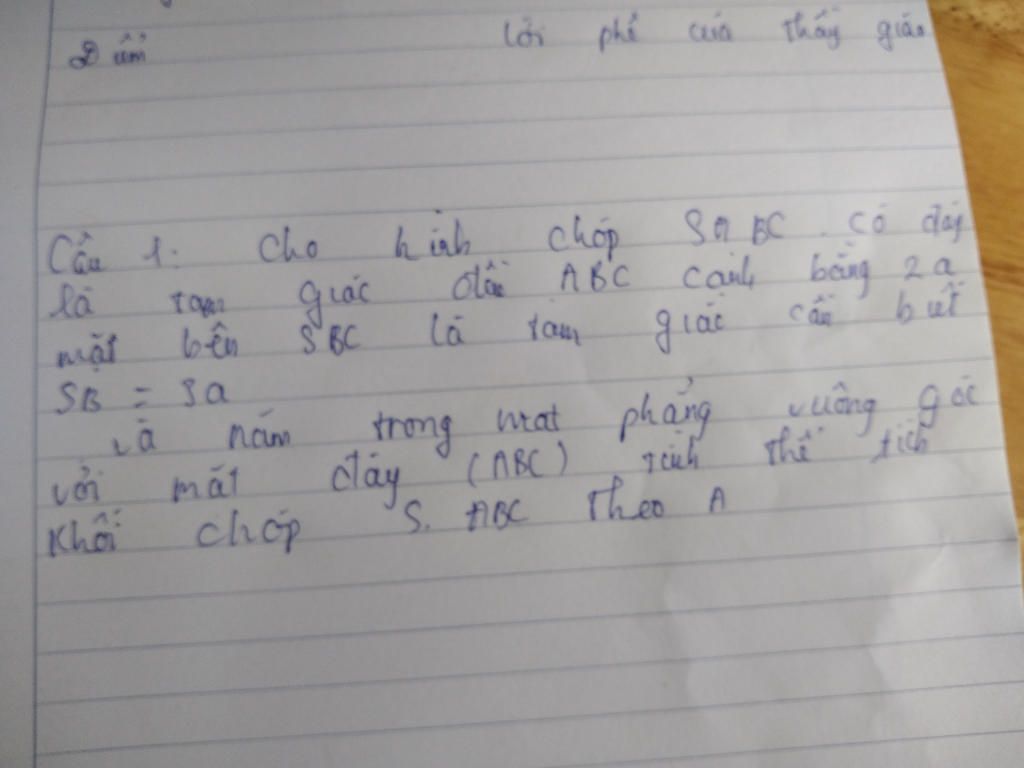 Điểm lời phê của thầy giáo
Câu 1: Cho hình chóp SABC. có đáy
là tam giác đều ABC cạnh bằng 2a
mặt bên SBC là tam giác cân biết
SB = 3a
và nằm trong mặt phẳng vuông góc
với mặt đáy (ABC) tính thể tích
Khối chóp S. ABC theo A